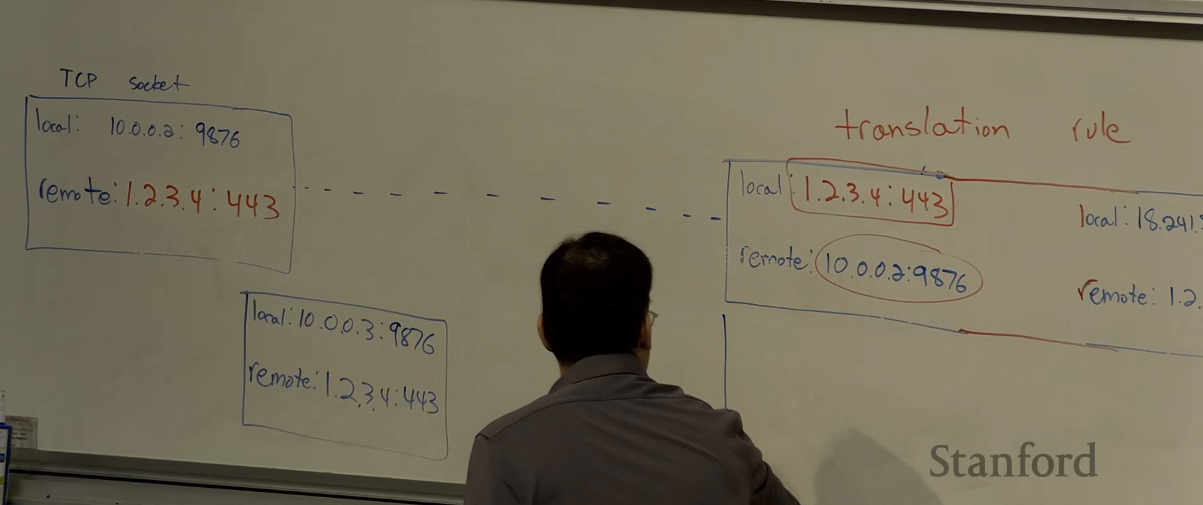 TCP socket
local: 10.0.0.2: 9876
remote: 1.2.3.4:443
local: 10.0.0.3:9876
remote: 1.2.3.4:443
translation rule
local: 1.2.3.4:443
remote: 10.0.0.2:9876
local: 18.241.
remote: 1.2.
Stanford